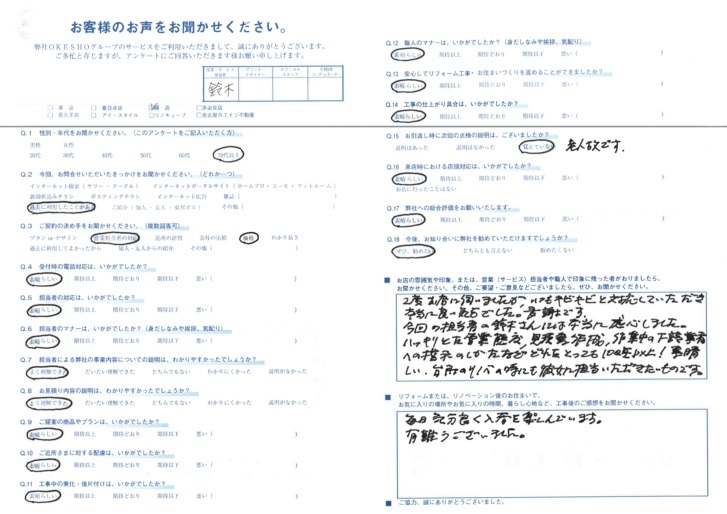 お客様のお声をお聞かせください。
弊社OKESHOグループのサービスをご利用いただきまして、誠にありがとうございます。
ご多忙と存じますが、アンケートにご回答いただきます様お願い申し上げます。
鈴木
□ 本店 □ 春日井店 □ 店
□ 長久手店 □ アイ・スタイル □ リノキューブ
Q.1 性別・年代をお聞かせください。(このアンケートをご記入いただく方)
男性 女性
20代 30代 40代 50代 60代 70代以上
Q.2 今回、お問合せいただいたきっかけをお聞かせください。(どれか一つ)
インターネット検索(ヤフー・グーグル) インターネットポータルサイト(ホームプロ・スーモ・アットホーム)
新聞折込みチラシ ポスティングチラシ インターネット広告 雑誌( )
過去に利用したことがある ご紹介(知人・友人・東邦ガス) その他( )
Q.3 ご契約の決め手をお聞かせください。(複数回答可)
プラン or デザイン 営業担当者の対応 近所の評判 会社の実績 価格 わかり易さ
過去に利用してよかったから 知人・友人からの紹介 その他( )
Q.4 受付時の電話対応は、いかがでしたか?
素晴らしい 期待以上 期待どおり 期待以下 悪い( )
Q.5 担当者の対応は、いかがでしたか?
素晴らしい 期待以上 期待どおり 期待以下 悪い( )
Q.6 担当者のマナーは、いかがでしたか?(身だしなみや挨拶、気配り)
素晴らしい 期待以上 期待どおり 期待以下 悪い( )
Q.7 担当者による弊社の事業内容についての説明は、わかりやすかったでしょうか?
よく理解できた だいたい理解できた どちらでもない わかりにくかった 説明がなかった
Q.8 お見積り内容の説明は、わかりやすかったでしょうか?
よく理解できた だいたい理解できた どちらでもない わかりにくかった 説明がなかった
Q.9 ご提案の商品やプランは、いかがでしたか?
素晴らしい 期待以上 期待どおり 期待以下 悪い( )
Q.10 ご近所さまに対する配慮は、いかがでしたか?
素晴らしい 期待以上 期待どおり 期待以下 悪い( )
Q.11 工事中の美化・後片付けは、いかがでしたか?
素晴らしい 期待以上 期待どおり 期待以下 悪い( )
Q.12 職人のマナーは、いかがでしたか?(身だしなみや挨拶、気配り)
素晴らしい 期待以上 期待どおり 期待以下 悪い( )
Q.13 安心してリフォーム工事・お住まいづくりを進めることができましたか?
素晴らしい 期待以上 期待どおり 期待以下 悪い( )
Q.14 工事の仕上がり具合は、いかがでしたか?
素晴らしい 期待以上 期待どおり 期待以下 悪い( )
Q.15 お引渡し時に次回の点検の説明は、ございましたか?
説明はあった 説明はなかった 覚えていない 老人故です。
Q.16 来店時における店頭対応は、いかがでしたか?
素晴らしい 期待以上 期待どおり 期待以下 悪い( )
お店に行ったことはない
Q.17 弊社への総合評価をお願いいたします。
素晴らしい 期待以上 期待どおり 期待以下 悪い( )
Q.18 今後、お知り合いに弊社を勧めていただけますでしょうか?
ぜひ、勧めたい どちらとも言えない 勧めたくない
■ お店の雰囲気や印象、または、営業(サービス)担当者や職人で印象に残った者がおりましたら、
お聞かせください。その他、ご要望・ご意見などございましたら、ぜひ、お聞かせください。
2度お店に伺いましたが、いつもキビキビと対応していただき
本当に良い気持でした。
今回の担当者の鈴木さんには本当に感心しました。
ハッキリとした営業態度、見積書作成、作業中の
への指示のしかたなどどれをとっても100点以上!素晴
しい。台所のリノベの時にも彼女に担当いただきたいものです。
■ リフォームまたは、リノベーション後のお住まいで、
お気に入りの場所やお気に入りの時間、暮らし心地など、工事後のご感想をお聞かせください。
毎日気分良く入浴を楽しんでいます。
有難うございました。
■ ご協力、誠にありがとうございました。